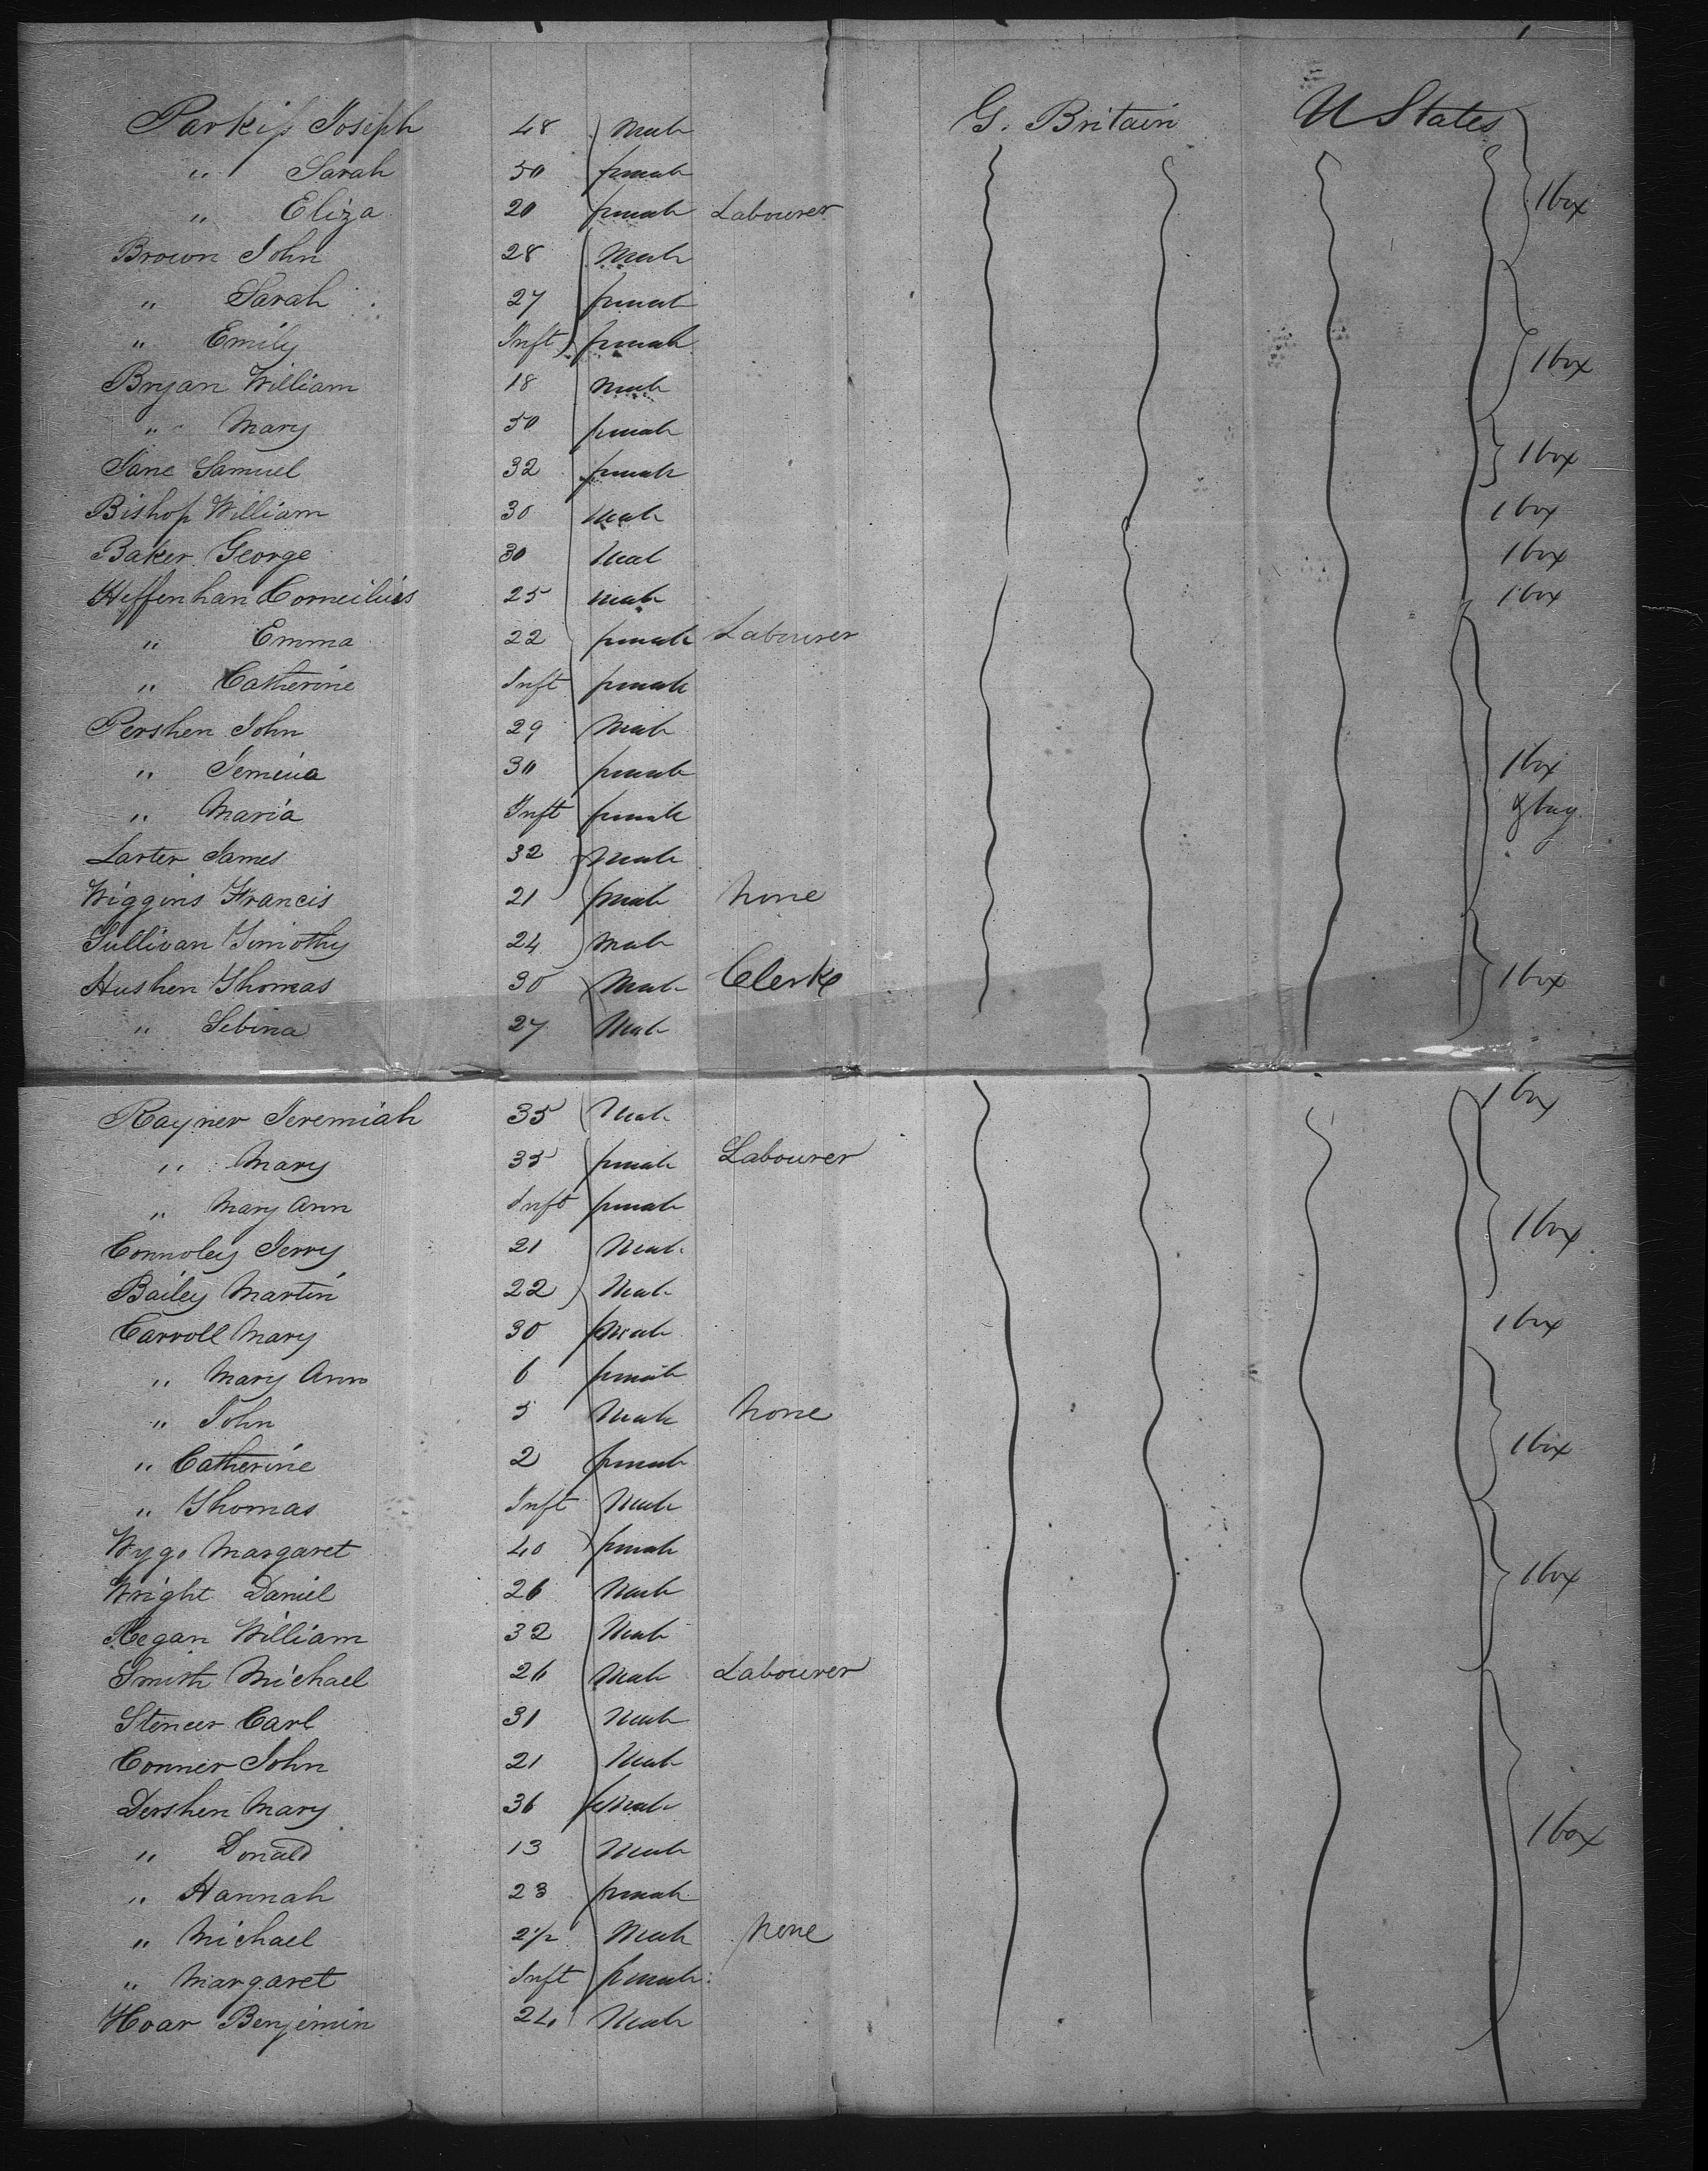 Parkiss Joseph 48 Male G. Britain U States
" Sarah 50 female
" Eliza 20 female Labourer 1 box
Brown John 28 Male
" Sarah 27 female
" Emily Inft female 1 box
Bryan William 18 Male
" Mary 50 female
Jane Samuel 32 female 1 box
Bishop William 30 Male 1 box
Baker George 30 Male 1 box
Heffenhan Corneilius 25 Male 1 box
" Emma 22 female Labourer
" Catherine Inft female
Pershen John 29 Male
" Jemina 30 female 1 box
" Maria Inft female & bag
Larter James 32 Male
Wiggins Francis 21 female none
Sullivan Timothy 24 Male
Hushen Thomas 30 Male Clerk 1 box
" Sebina 27 Male
Rayner Jeremiah 35 Male 1 box
" Mary 35 female Labourer
" Mary Ann Inft female
Connoley Jerry 21 Male 1 box
Bailey Martin 22 Male
Carroll Mary 30 female 1 box
" Mary Ann 6 female
" John 5 Male none
" Catherine 2 female 1 box
" Thomas Inft Male
Wygo Margaret 40 female
Wright Daniel 26 Male 1 box
Regan William 32 Male
Smith Michael 26 Male Labourer
Stencer Carl 31 Male
Conner John 21 Male
Dershen Mary 36 female
" Donald 13 Male 1 box
" Hannah 23 female
" Michael 2 1/2 Male none
" Margaret Inft female
Hoar Benjemin 24 Male